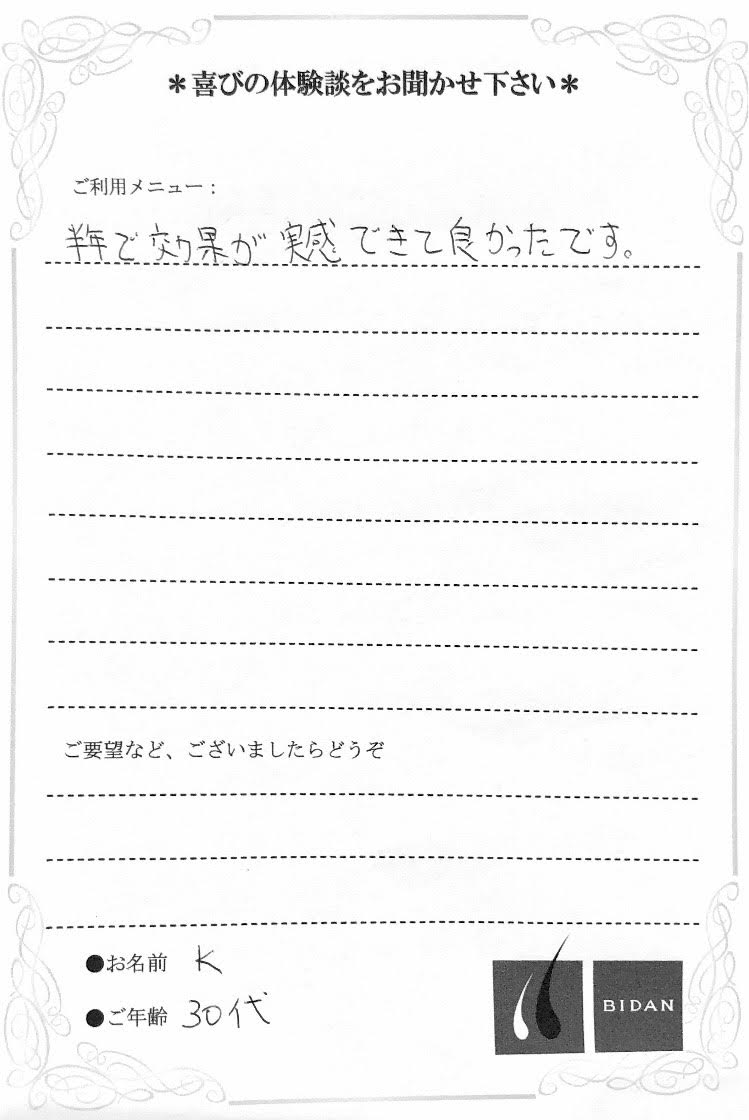 ＊喜びの体験談をお聞かせ下さい＊
ご利用メニュー：
半年で効果が実感できて良かったです。
ご要望など、ございましたらどうぞ
●お名前 K
●ご年齢 30代
BIDAN